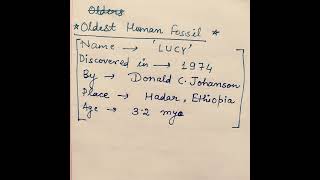 Olders
* Oldest Human Fossil *
Name → 'LUCY'
Discovered in → 1974
By → Donald C. Johanson
Place → Hadar, Ethiopia
Age → 3.2 mya